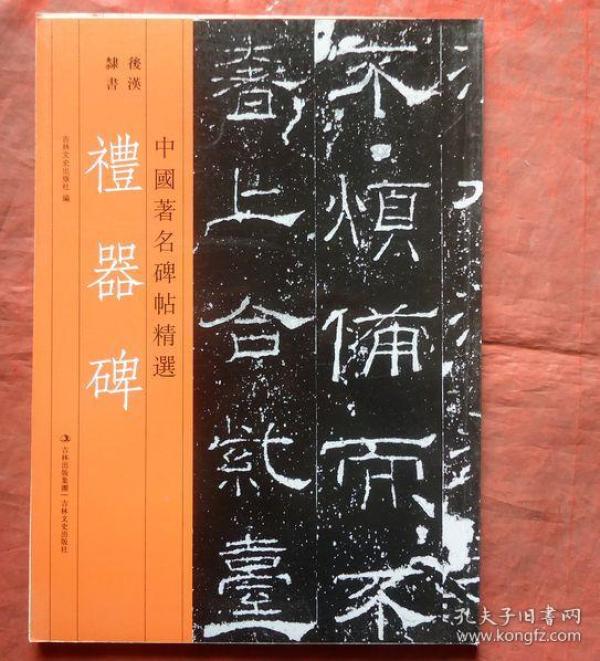 不煩備而不
奢上合紫臺
後漢
隸書
中國著名碑帖精選
禮器碑
吉林文史出版社 編
吉林出版集團|吉林文史出版社
孔夫子旧书网
www.kongfz.com